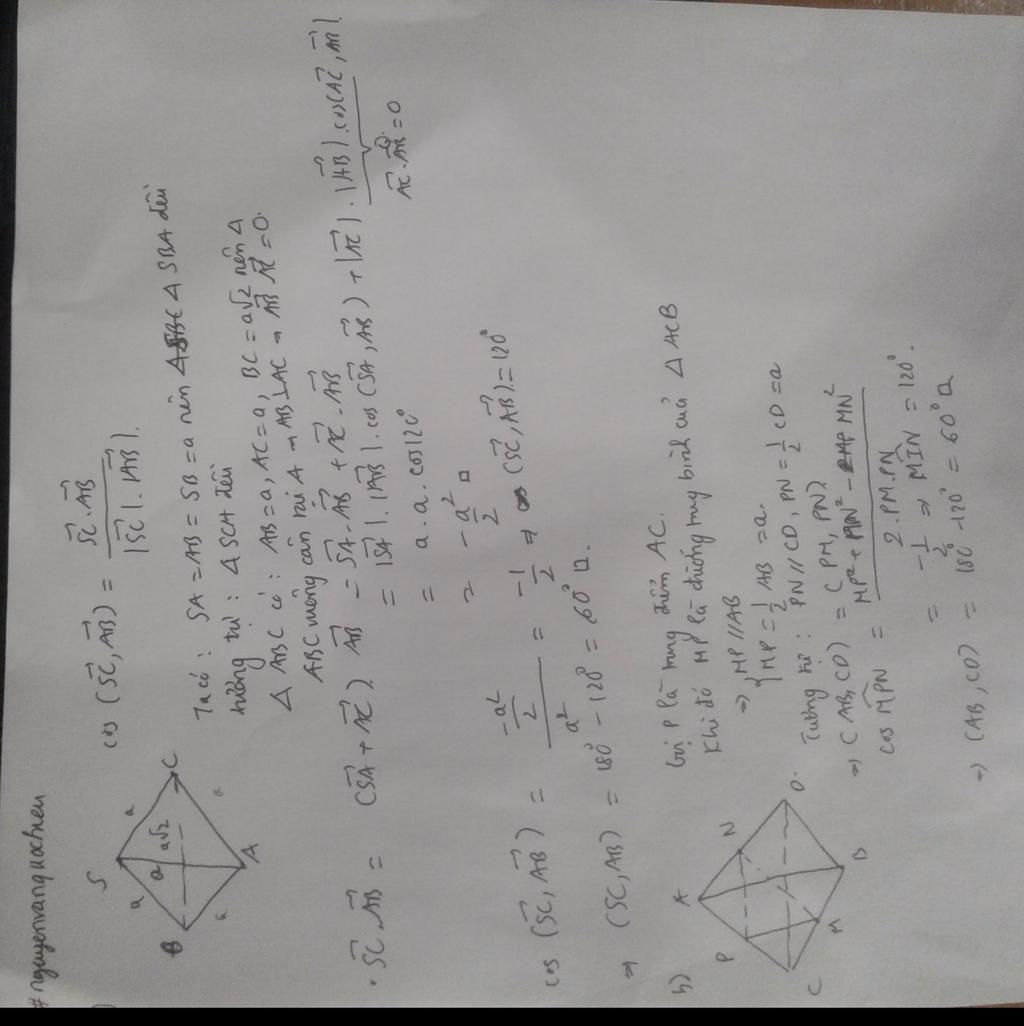 # nguyenvanquochieu
)
S
a
a
a
a√2
B
C
a
a
A
cos (SC, AB) = SC . AB / |SC| . |AB| .
Ta có : SA = AB = SB = a nên Δ SBA đều
tương tự : Δ SCA đều
Δ ABC có : AB = a, AC = a, BC = a√2 nên Δ
ABC vuông cân tại A → AB ⊥ AC → AB AC = 0.
. SC . AB = (SA + AC) AB = SA . AB + AC . AB
= |SA| . |AB| . cos (SA, AB) + |AC| . |AB| . cos (AC, AB) .
AC . AB = 0
= a . a . cos 120°
= - a²/2
cos (SC, AB) = (-a²/2) / a² = -1/2 ⇒ (SC, AB) = 120°
⇒ (SC, AB) = 180° - 120° = 60°
b)
A
P
N
D
B
M
C
Gọi P là trung điểm AC.
Khi đó MP là đường trung bình của Δ ACB
⇒ { MP // AB
MP = 1/2 AB = a.
Tương tự : PN // CD, PN = 1/2 CD = a
⇒ (AB, CD) = (PM, PN)
cos MPN = MP² + PN² - MN² / 2 . PM . PN
= -1/2 ⇒ MPN = 120° .
⇒ (AB, CD) = 180° - 120° = 60°